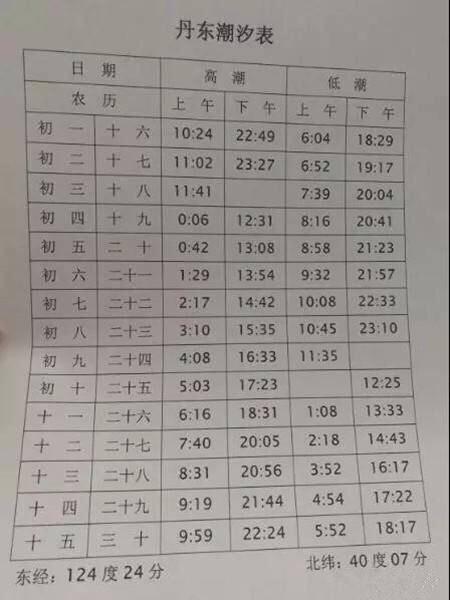 丹东潮汐表
日 期 高 潮 低 潮
农 历 上 午 下 午 上 午 下 午
初 一 十 六 10:24 22:49 6:04 18:29
初 二 十 七 11:02 23:27 6:52 19:17
初 三 十 八 11:41 7:39 20:04
初 四 十 九 0:06 12:31 8:16 20:41
初 五 二 十 0:42 13:08 8:58 21:23
初 六 二十一 1:29 13:54 9:32 21:57
初 七 二十二 2:17 14:42 10:08 22:33
初 八 二十三 3:10 15:35 10:45 23:10
初 九 二十四 4:08 16:33 11:35
初 十 二十五 5:03 17:23 12:25
十 一 二十六 6:16 18:31 1:08 13:33
十 二 二十七 7:40 20:05 2:18 14:43
十 三 二十八 8:31 20:56 3:52 16:17
十 四 二十九 9:19 21:44 4:54 17:22
十 五 三 十 9:59 22:24 5:52 18:17
东经：124 度 24 分 北纬：40 度 07 分